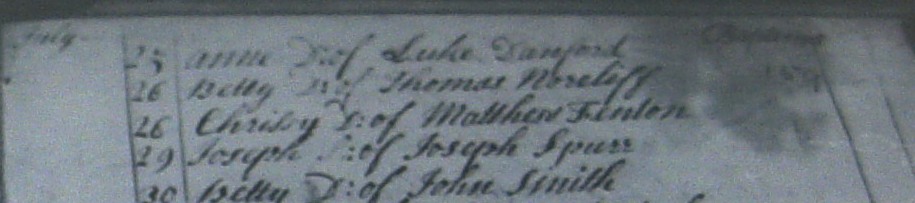 July
25 anne D: of Luke Danford
26 Betty D: of Thomas Norcliff
26 Christy D: of Matthew Fenton
29 Joseph S: of Joseph Spurr
30 Betty D: of John Smith